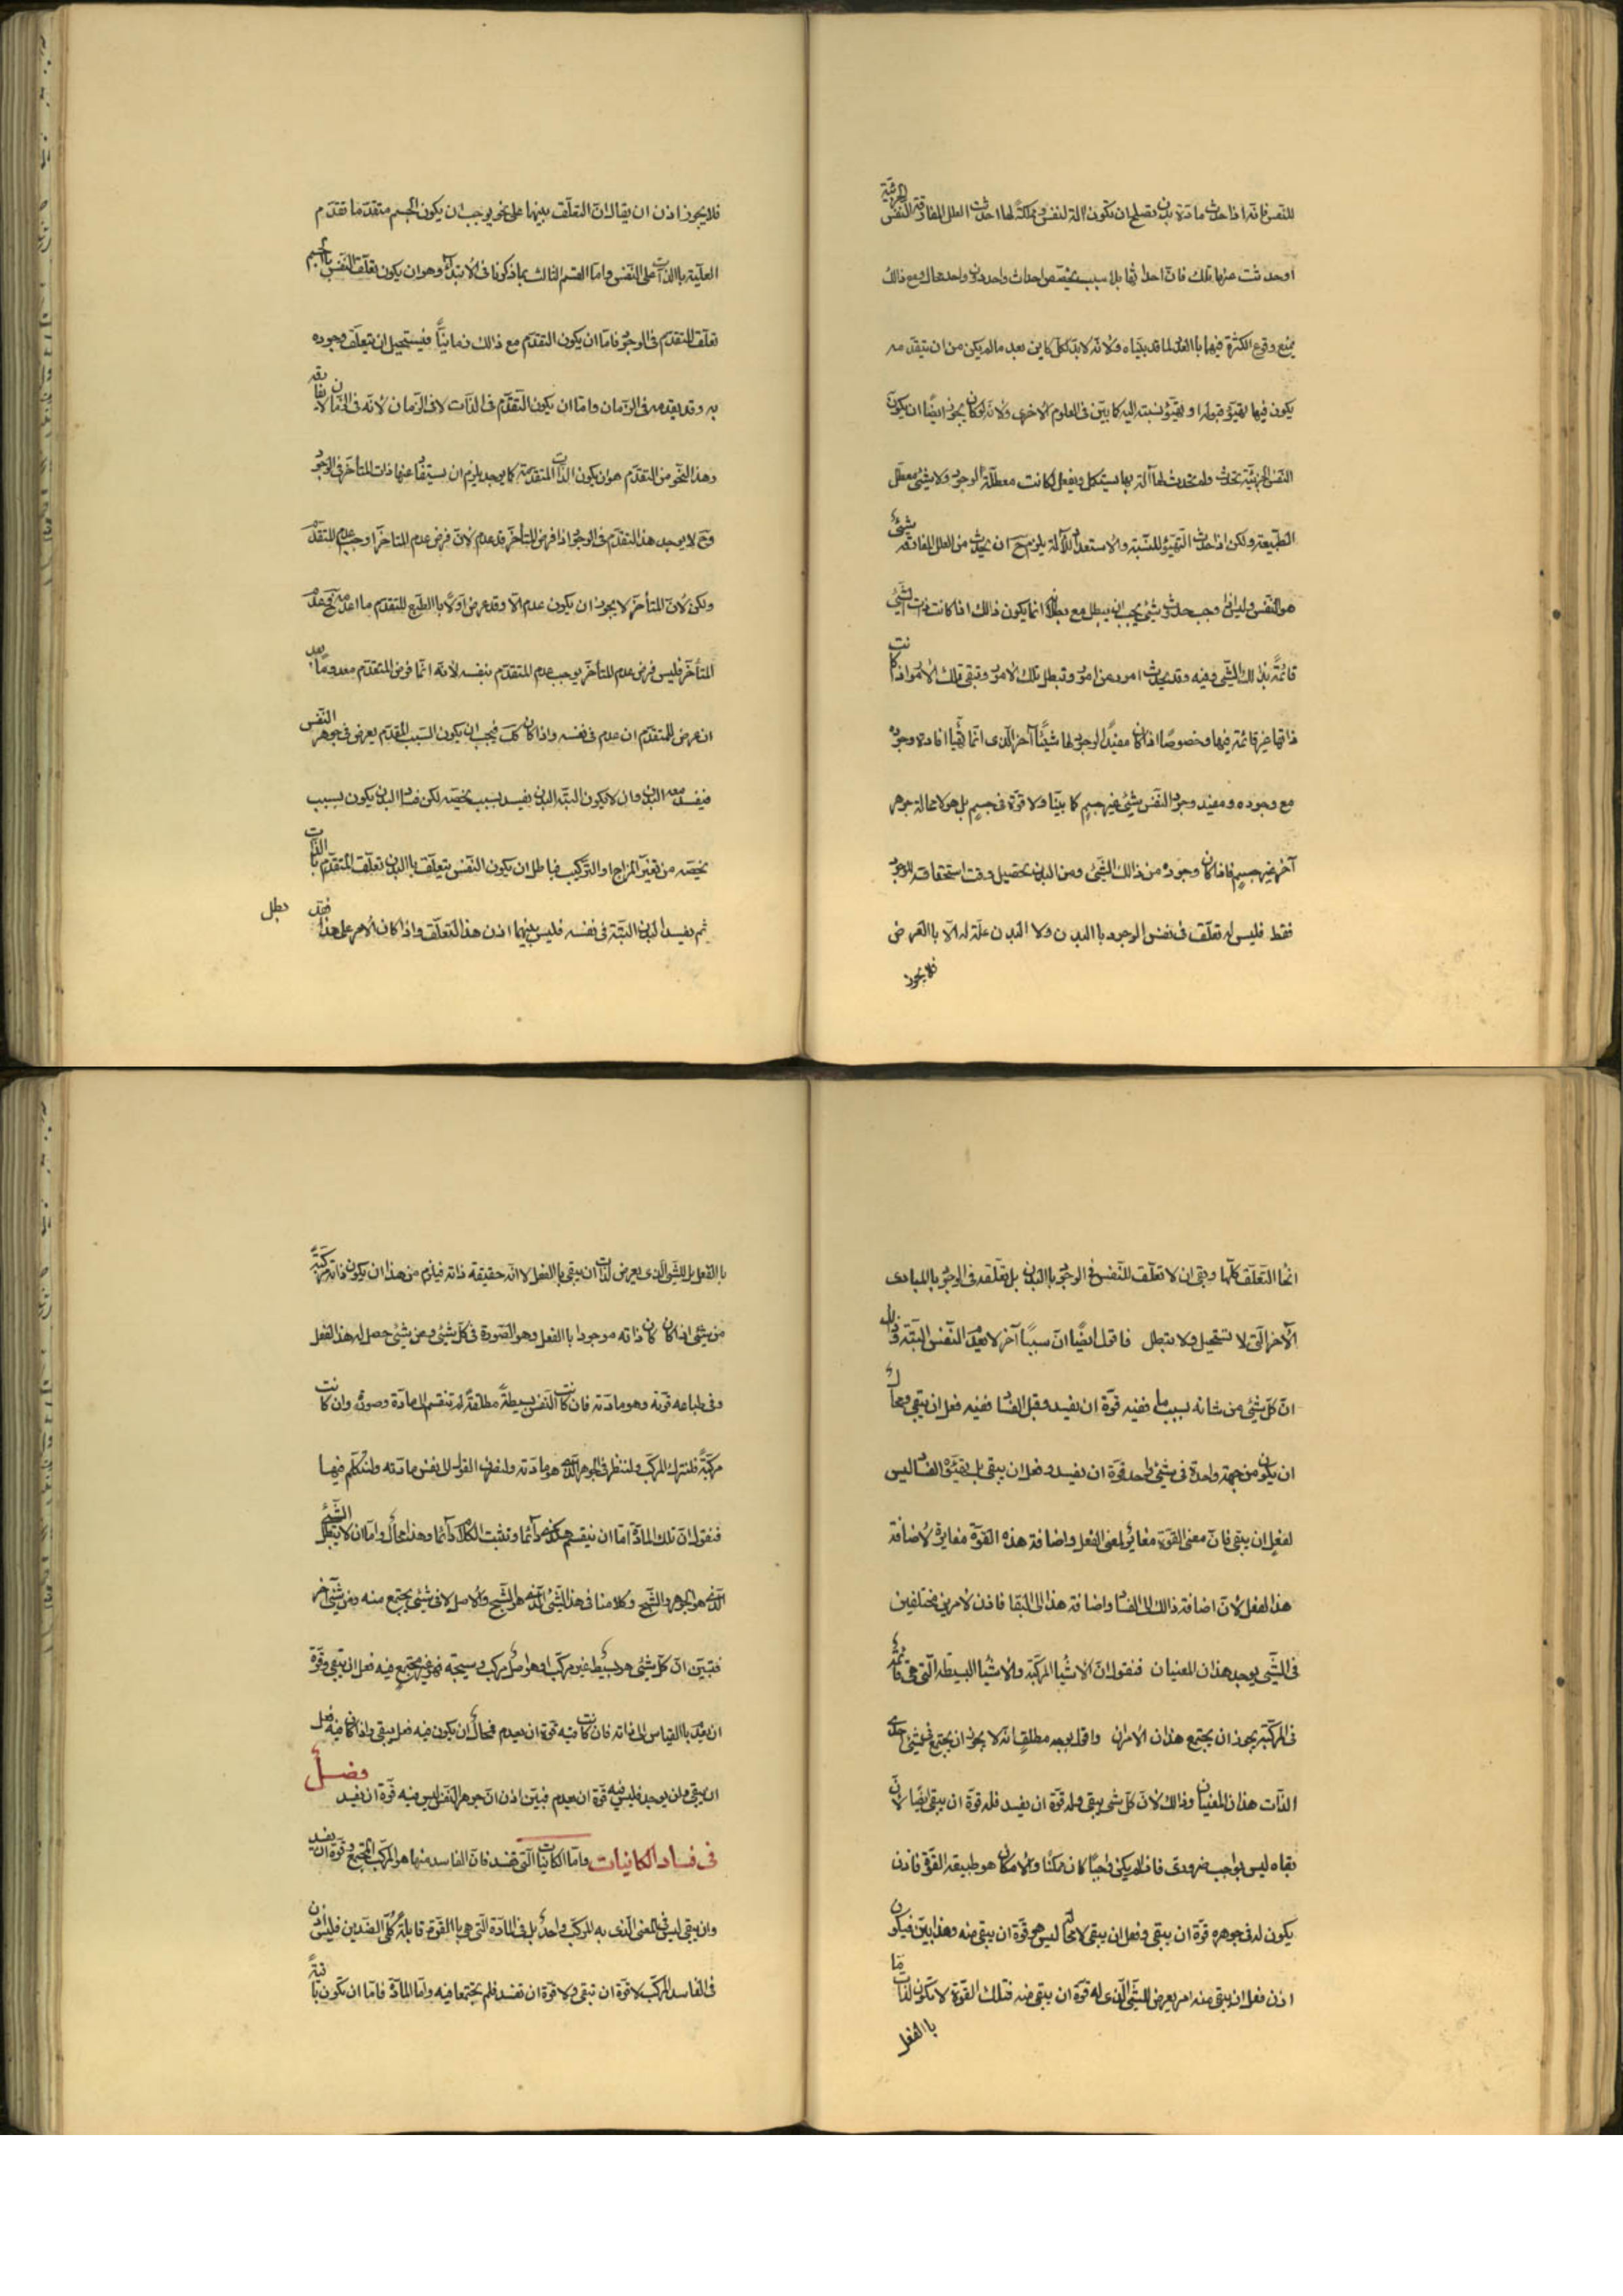 للنفس فانه اذا حدث مادة بدن تصلح ان تكون آلة لنفس ومملكة لها احدث العلل المفارقة النفس الجزئية
اوحدثت عنها تلك فان احداثها بلا سبب يخصص احداث واحد دون واحد محال ومع ذالك
يمنع وقوع الكثرة فيها باالعدد لما قد بيناه ولانه لابد لكل كاين بعد مالم يكن من ان يتقدمه
يكون فيها تهيؤ قبوله او تهيؤ نسبته اليه كما بين فى العلوم الاخرى ولانه لوكان يجوز ايضا ان يكون
النفس الجزئية تحدث ولم تحدث لها آلة بها يستكمل ويفعل لكانت معطلة الوجود ولا شئ معطل
الطبيعة ولكن اذا حدث التهيؤ للنسبة والاستعداد للآلة يلزم ح ان يحدث من العلل المفارقة شئ
هو النفس وليس اذا وجب حدوث شئ يجب ان يبطل مع بطلانه انما يكون ذالك اذا كانت ذات الشئ
قائمة بذلك الشئ وفيه وقد يحدث امور عن امور وتبطل تلك الامور وتبقى تلك الامور اذا كانت
ذاتها غير قائمة فيها وخصوصا اذا كان مفيد الوجود لها شيئا آخر الذى انما تهيأ افادة وجوده
مع وجوده ومفيد وجود النفس شئ غير جسم كما بينا ولا قوة فى جسم بل هو لا محالة جوهر
آخر غير جسم فاذا كان وجوده من ذالك الشئ ومن البدن تحصيل وقت استحقاقه للوجود
فقط فليس له تعلق فى نفس الوجود باالبدن ولا البدن علة له الا باالعرض
فلا يجوز
فلا يجوز اذن ان يقال ان التعلق بينها على نحو يوجب ان يكون الجسم متقدما تقدم
العلية باالذات على النفس واما القسم الثالث مما ذكرنا فى الابتداء وهو ان يكون تعلق النفس باالجسم
تعلق المتقدم فى الوجود فاما ان يكون التقدم مع ذالك زمانيا فيستحيل ان يتعلق وجوده
به وقد يقدمه فى الزمان واما ان يكون التقدم فى الذات لا فى الزمان لانه فى الزمان لا يفارقه
وهذا النحو من التقدم هو ان يكون الذات المتقدمة كما يوجد يلزم ان يستفاد عنها ذات المتأخر فى الوجود
وح لا يوجد هذا المتقدم فى الوجود اذا فرض المتأخر قد عدم لا ان فرض عدم المتاخر اوجب عدم المتقدم
ولكن لان المتأخر لا يجوز ان يكون عدم الا وقد عرض اولا باالطبع للمتقدم ما اعدمه فح عدم
المتأخر فليس فرض عدم المتأخر يوجب عدم المتقدم بنفسه لانه انما فرض المتقدم معدوما بعد
ان عرض للمتقدم ان عدم فى نفسه واذا كان كك فيجب ان يكون السبب المقدم يعرض فى جوهر النفس
فيفسد معه البدن وان لا يكون البتة البدن يفسد بسبب يخصه لكن فساد البدن يكون بسبب
يخصه من تغير المزاج او التركيب فباطل ان يكون النفس يتعلق باالبدن تعلق المتقدم باالذات
ثم يفسد البدن البتة فى نفسه فليس بينهما اذن هذا التعلق واذا كان الامر على هذا فقد
بطل
انحا التعلق كلها وبقى ان لا تعلق للنفس فى الوجود باالبدن بل تعلقه فى الوجود باالمبادى
الآخر التى لا تستحيل ولا تبطل فاقول ايضا ان سببا آخر لا يعدم النفس البتة وذلك
ان كل شئ من شانه بسبب ما ففيه قوة ان يفسد وقبل الفساد ففيه فعل ان يبقى ومحال
ان يكون من جهة واحدة فى شئ واحد قوة ان يفسد وفعل ان يبقى بل تهيؤه الفساد ليس
لفعل ان يبقى فان معنى القوة مغاير لمعنى الفعل واضافة هذه القوة مغايرة لاضافة
هذا الفعل لان اضافة ذالك الى الفساد واضافة هذا الى البقا فاذن لامرين مختلفين
فى الشئ يوجد هذان المعنيان فنقول ان الاشيا المركبة والاشيا البسيطه التى هى قائمة
فى المركبة يجوز ان يجتمع هذان الامران واقول بوجه مطلق انه لا يجوز ان يجتمع فى شئ احدى
الذات هذان المعنيان وذالك لان كل شئ يبقى وله قوة ان يفسد فله قوة ان يبقى ايضا لان
بقاه ليس بواجب ضرورى فاذا لم يكن واجبا كان ممكنا والامكان هو طبيعة القوة فاذن
يكون له فى جوهره قوة ان يبقى وفعل ان يبقى لا محالة ليس هو قوة ان يبقى منه وهذا بين فيكون
اذن فعل ان يبقى منه امر يعرض للشئ الذى له قوة ان يبقى منه فتلك القوة لا تكون لذات ما
باالفعل
باالفعل بل للشئ الذى يعرض لذاته ان يبقى باالفعل لا انه حقيقة ذاته فيلزم من هذا ان يكون ذاته مركبة
من شئ اذا كان كان ذاته موجودا باالفعل وهو الصورة فى كل شئ وعن شئ حصل له هذا الفعل
وفى طباعه قوته وهو مادته فان كانت النفس بسيطة مطلقة لم تنقسم الى مادة وصورة وان كانت
مركبة فلنترك المركب ولننظر فى الجوهر الذى هو مادته ولنصرف القول الى نفس مادته ولنتكلم فيها
فنقول ان تلك المادة اما ان ينقسم هكذا دائما وتثبت الكلام دائما وهذا محال واما ان لا يبطل الشئ
الذى هو الجوهر والشبح وكلامنا فى هذا الشئ الذى هو الشبح والاصل لا فى شئ يجتمع منه ومن شئ آخر
فتبين ان كل شئ هو بسيط غير مركب او هو اصل مركب وسبخه فهو غير مجتمع فيه فعل ان يبقى وقوة
ان يعدم باالقياس الى ذاته فان كانت فيه قوة ان يعدم فمحال ان يكون فيه فعل يبقى واذا كان فيه فعل
ان يبقى وان يوجد فليس فيه قوة ان يعدم فبين اذن ان جوهر النفس ليس فيه قوة ان يفسد فصل
فى فساد الكانيات واما الكانيات التى تفسد فان الفاسد منها هو المركب المجتمع وقوة ان يفسد
وان يبقى ليس فى المعنى الذى به المركب واحد بل فى المادة التى هى باالقوة قابلة كلى الضدين فليس اذن
فى الفاسد المركب لا قوة ان تبقى ولا قوة ان تفسد فلم يجتمعا فيه واما المادة فاما ان تكون باقية